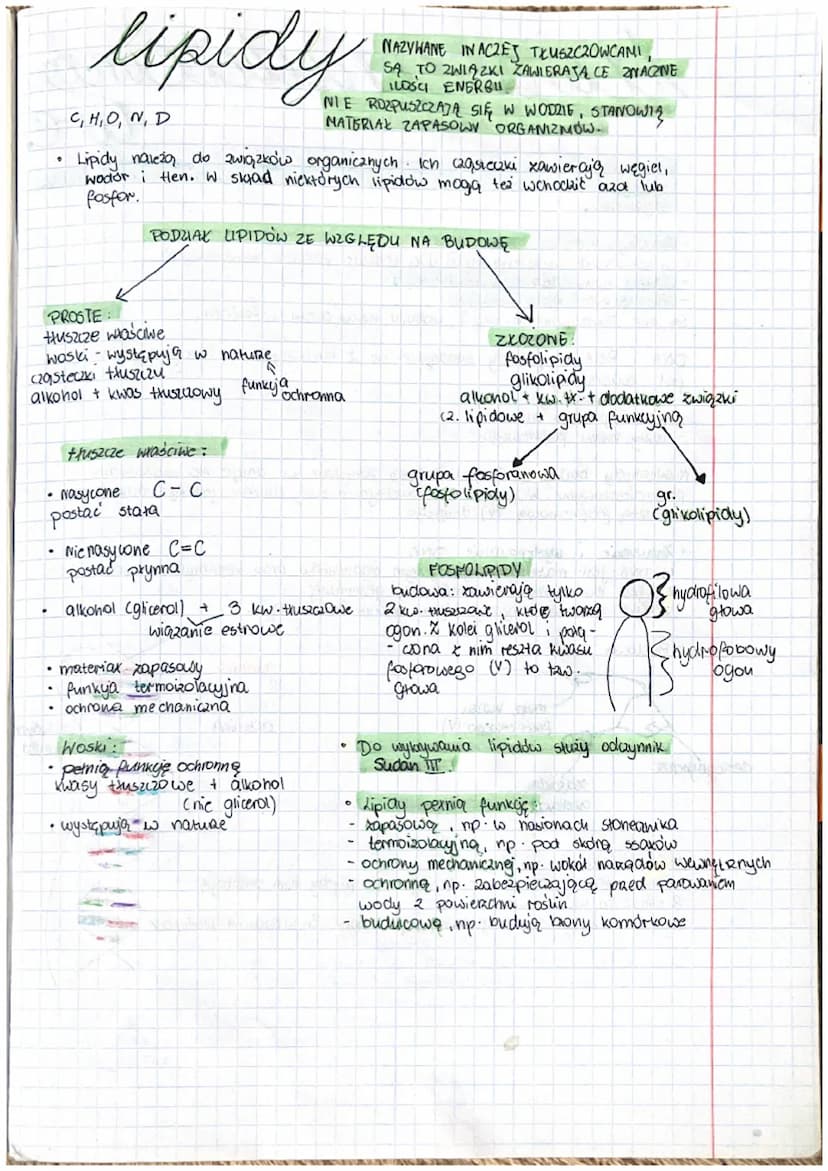 lipidy
NAZYWANE INACZEJ TŁUSZCZOWCAMI,
SĄ TO ZWIĄZKI ZAWIERAJĄCE ZNACZNE
ILOŚCI ENERGII.
NIE ROZPUSZCZAJĄ SIĘ W WODZIE, STANOWIĄ
MATERIAŁ ZAPASOWY ORGANIZMÓW.
C, H, O, N, D
• Lipidy należą do związków organicznych. Ich cząsteczki zawierają węgiel,
wodór i tlen. W skład niektórych lipidów mogą też wchodzić azot lub
fosfor.
PODZIAŁ LIPIDÓW ZE WZGLĘDU NA BUDOWĘ
PROSTE:
tłuszcze właściwe
woski - występują w naturze
cząsteczki tłuszczu
alkohol + kwas tłuszczowy
funkcja
ochronna
ZŁOŻONE:
fosfolipidy
glikolipidy
alkohol + kw. tł. + dodatkowe związki
cz. lipidowe + grupa funkcyjną
grupa fosforanowa
(fosfolipidy)
gr.
(glikolipidy)
tłuszcze właściwe:
• nasycone C-C
postać stała
• nienasycone C=C
postać płynna
• alkohol (glicerol) + 3 kw. tłuszczowe
wiązanie estrowe
• materiał zapasowy
• funkcja termoizolacyjna
• ochrona mechaniczna
FOSFOLIPIDY
budowa: zawierają tylko
2 kw. tłuszczowe, które tworzą
ogon. Z kolei glicerol i połą-
- czona z nim reszta kwasu
fosforowego (V) to tzw.
głowa
hydrofilowa
głowa
hydrofobowy
ogon
Woski:
• pełnią funkcję ochronną
kwasy tłuszczowe + alkohol
(nie glicerol)
• występują w naturze
• Do wykrywania lipidów służy odczynnik
Sudan III.
• Lipidy pełnią funkcję:
- zapasową, np. w nasionach słonecznika
- termoizolacyjną, np. pod skórą ssaków
- ochrony mechanicznej, np. wokół narządów wewnętrznych
- ochronną, np. zabezpieczającą przed parowaniem
wody z powierzchni roślin
- budulcową, np. budują błony komórkowe